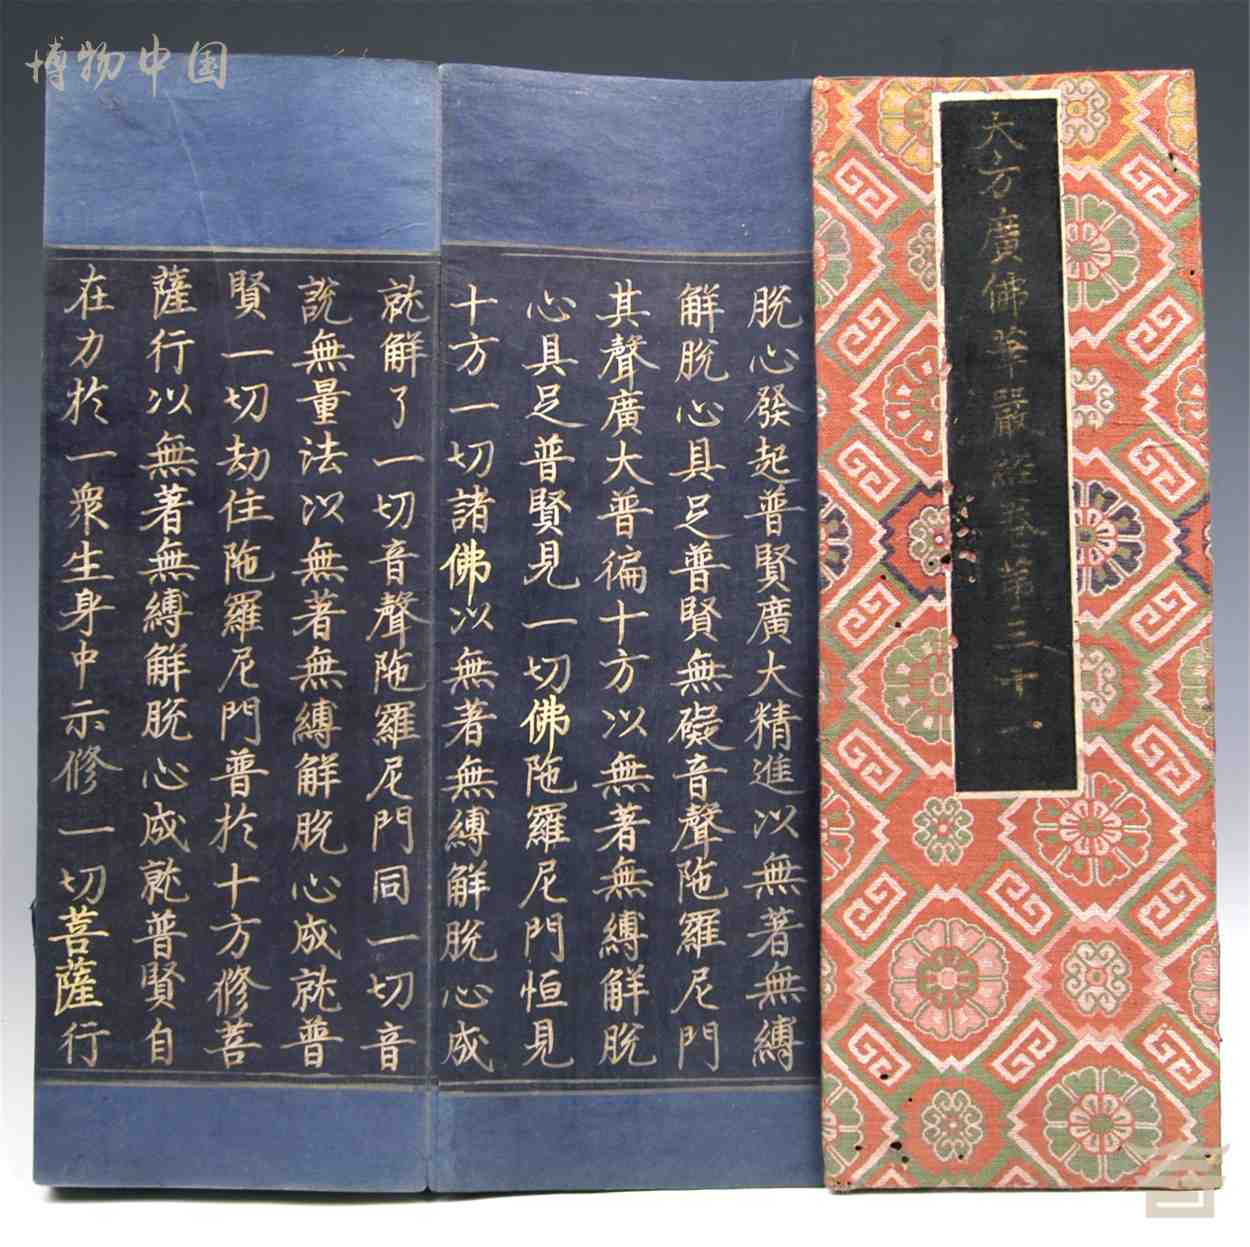 博物中国
大方廣佛華嚴經卷第三十一
脫心發起普賢廣大精進以無著無縛
解脫心具足普賢無礙音聲陁羅尼門
其聲廣大普徧十方以無著無縛解脫
心具足普賢見一切佛陁羅尼門恒見
十方一切諸佛以無著無縛解脫心成
就解了一切音聲陁羅尼門同一切音
說無量法以無著無縛解脫心成就普
賢一切劫住陁羅尼門普於十方修菩
薩行以無著無縛解脫心成就普賢自
在力於一衆生身中示修一切菩薩行